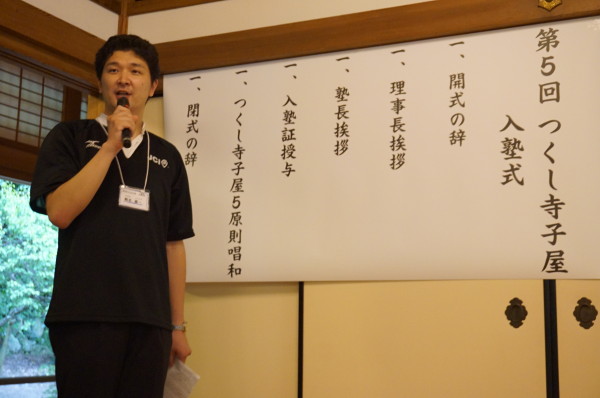 第5回 つくし寺子屋
入塾式
一、開式の辞
一、理事長挨拶
一、塾長挨拶
一、入塾証授与
一、つくし寺子屋5原則唱和
一、閉式の辞
JCI